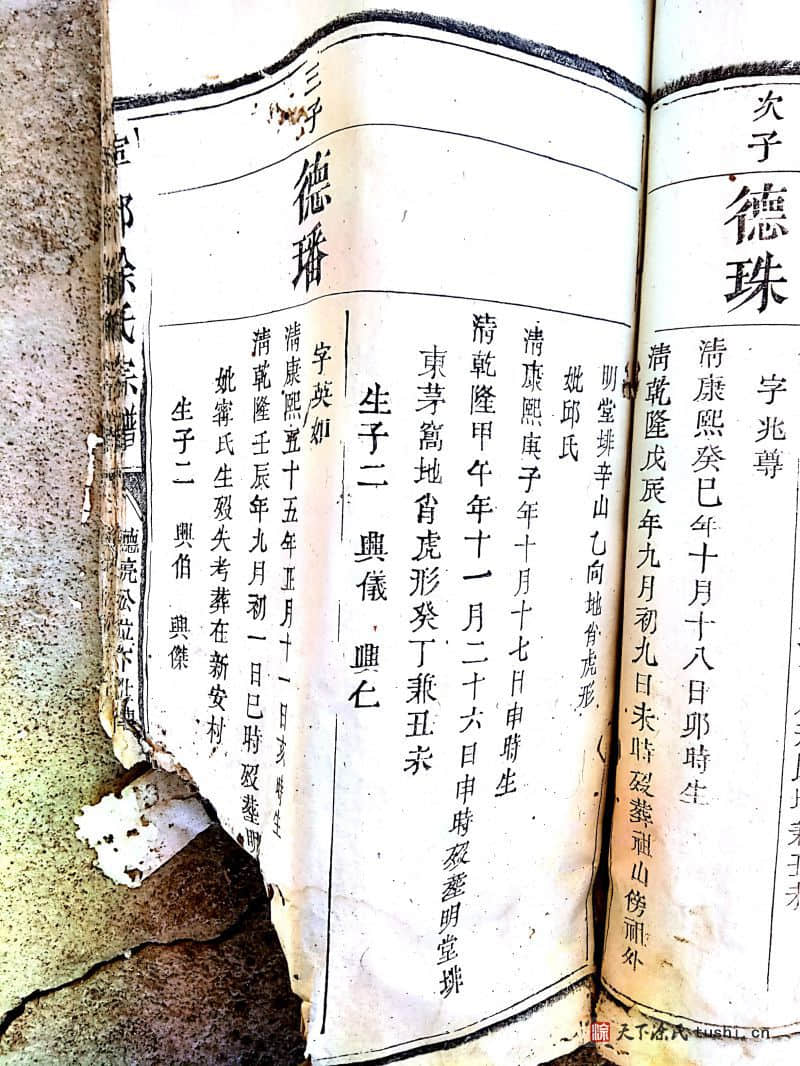 次子
德珠
字兆尊
清康熙癸巳年十月十八日卯時生
清乾隆戊辰年九月初九日未時歿葬祖山傍祖外
明堂排辛山乙向地肖虎形
妣邱氏
清康熙庚子年十月十七日申時生
清乾隆甲午年十一月二十六日申時歿塟明堂排
東茅窩地肖虎形癸丁兼丑未
生子二 興儀 興仁
三子
德璠
字英如
清康熙五十五年正月十一日亥時生
清乾隆壬辰年九月初一日巳時歿塟明
妣甯氏生歿失考葬在新安村
生子二 興伯 興傑
涂氏宗譜
德亮公位下世傳
天下涂氏tushi.cn